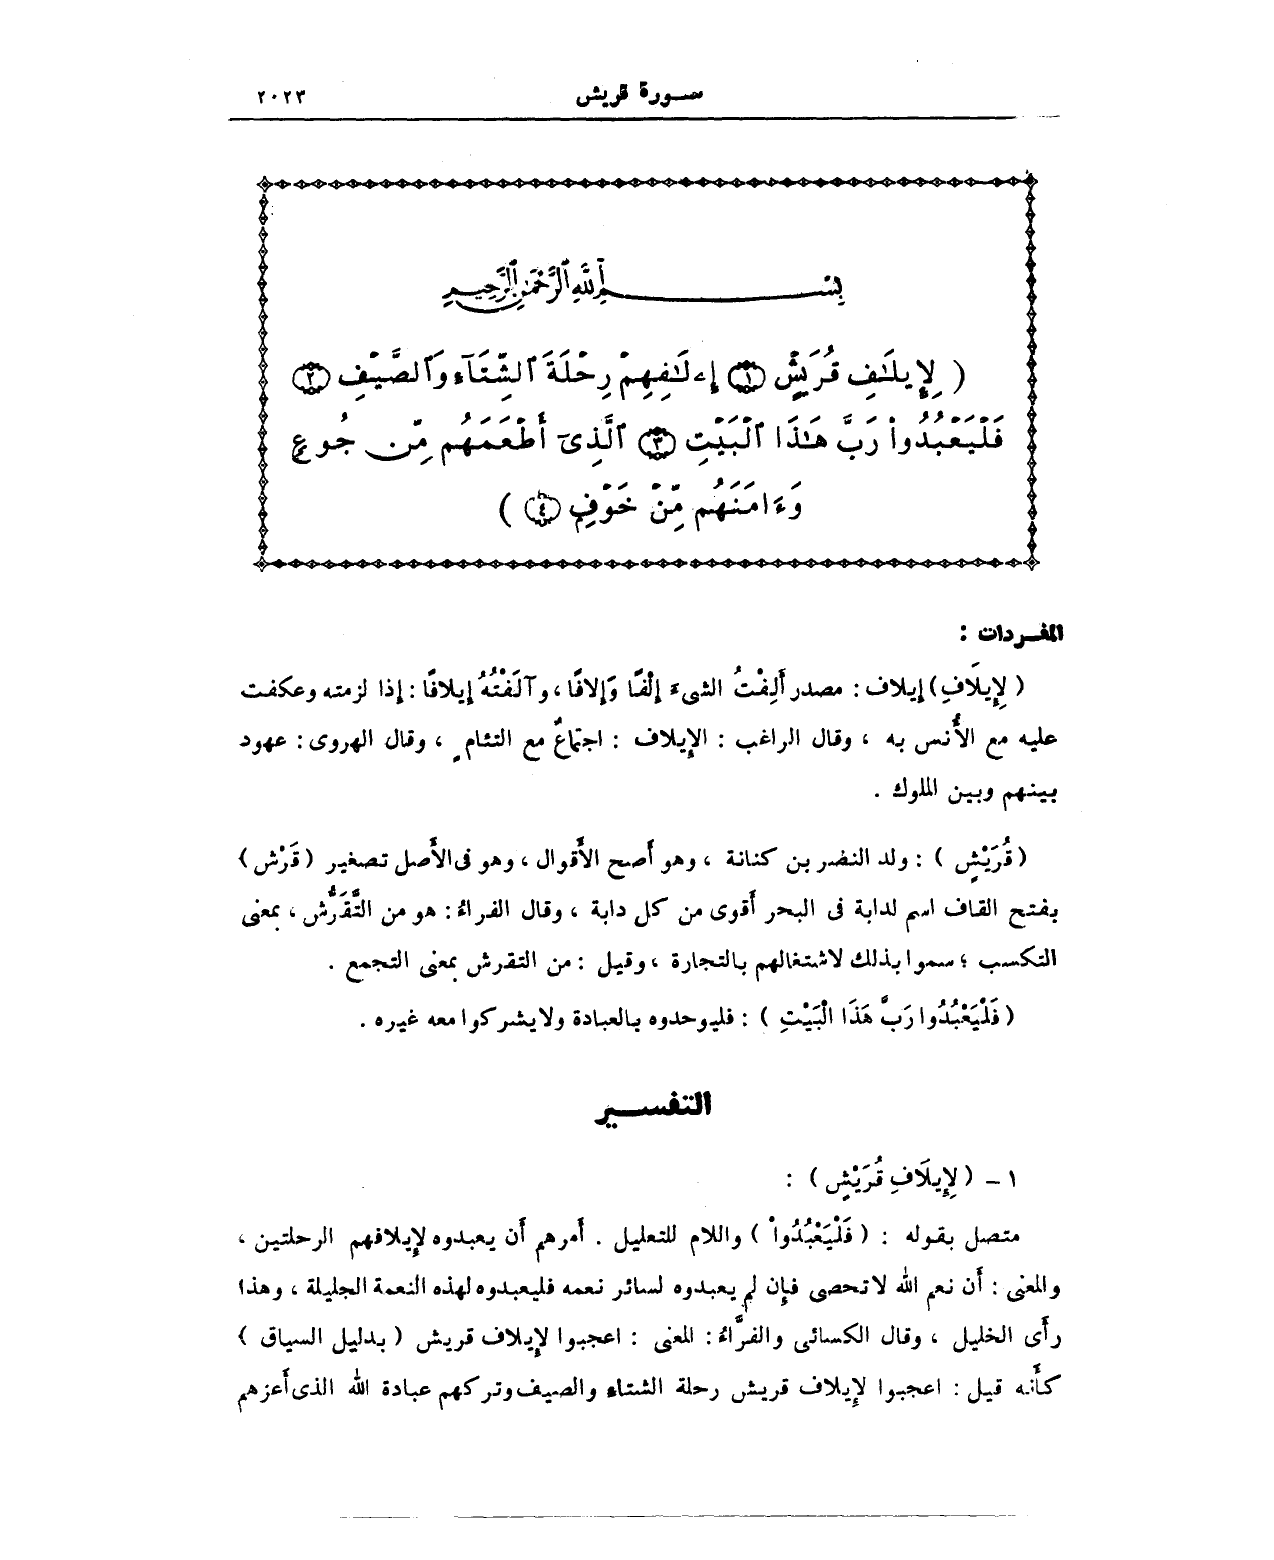 سورة قريش ٢٠٢٣
بِسْمِ ٱللَّهِ ٱلرَّحْمَٰنِ ٱلرَّحِيمِ
( لِإِيلَٰفِ قُرَيْشٍ ١ إِۦلَٰفِهِمْ رِحْلَةَ ٱلشِّتَآءِ وَٱلصَّيْفِ ٢
فَلْيَعْبُدُوا۟ رَبَّ هَٰذَا ٱلْبَيْتِ ٣ ٱلَّذِىٓ أَطْعَمَهُم مِّن جُوعٍ
وَءَامَنَهُم مِّنْ خَوْفٍ ٤ )
المفردات :
( لِإِيلَافِ ) إيلاف : مصدر أَلِفْتُ الشىء إِلْفًا وَإِلافًا ، وآلَفْتُهُ إيلافًا : إذا لزمته وعكفت
عليه مع الأُنس به ، وقال الراغب : الإِيلاف : اجتماعٌ مع التئام ، وقال الهروى : عهود
بينهم وبين الملوك .
( قُرَيْشٍ ) : ولد النضر بن كنانة ، وهو أَصح الأَقوال ، وهو فى الأَصل تصغير ( قَرْش )
بفتح القاف اسم لدابة فى البحر أَقوى من كل دابة ، وقال الفراءُ : هو من التَّقَرُّش ، بمعنى
التكسب ؛ سموا بذلك لاشتغالهم بالتجارة ، وقيل : من التقرش بمعنى التجمع .
( فَلْيَعْبُدُوا رَبَّ هَذَا الْبَيْتِ ) : فليوحدوه بالعبادة ولا يشركوا معه غيره .
التفسير
١ - ( لِإِيلَافِ قُرَيْشٍ ) :
متصل بقوله : ( فَلْيَعْبُدُوا ) واللام للتعليل . أَمرهم أَن يعبدوه لإِيلافهم الرحلتين ،
والمعنى : أَن نعم الله لا تحصى فإِن لم يعبدوه لسائر نعمه فليعبدوه لهذه النعمة الجليلة ، وهذا
رأى الخليل ، وقال الكسائى والفرَّاءُ : المعنى : اعجبوا لإِيلاف قريش ( بدليل السياق )
كأَنه قيل : اعجبوا لإِيلاف قريش رحلة الشتاء والصيف وتركهم عبادة الله الذى أَعزهم